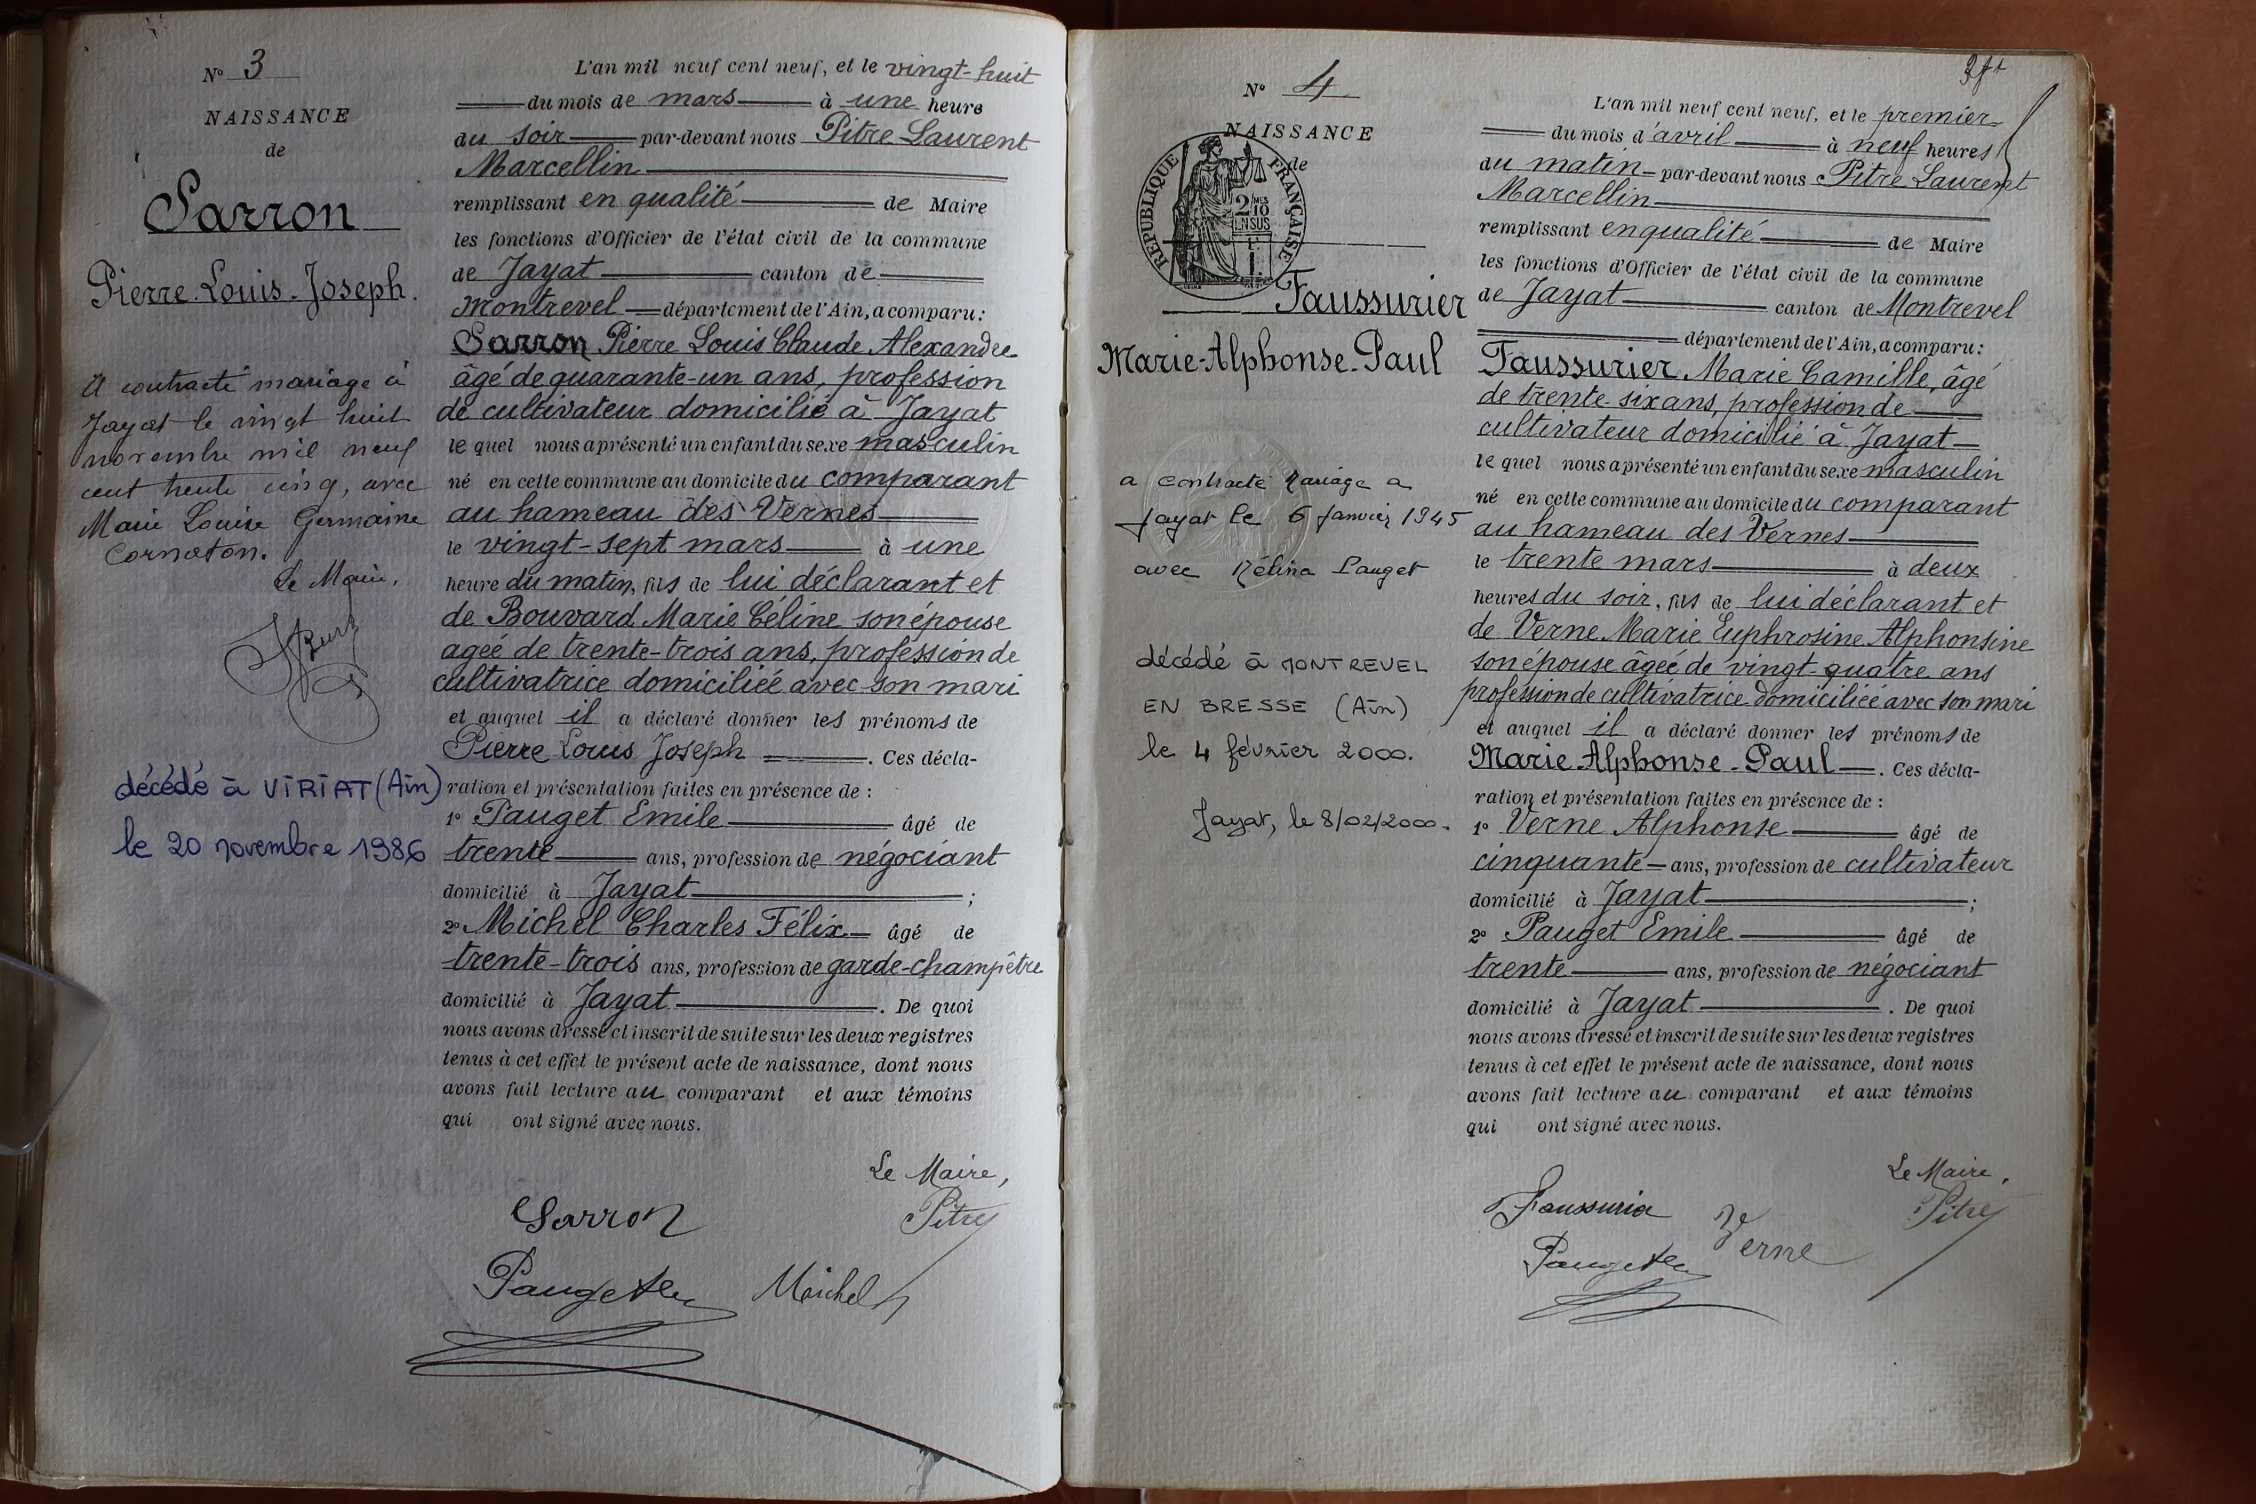 N° 3
NAISSANCE
de
Sarron
Pierre-Louis-Joseph.
A contracté mariage à
Jayat le vingt huit
novembre mil neuf
cent trente cinq, avec
Marie Louise Germaine
Cornaton.
Le Maire,
décédé à VIRIAT (Ain)
le 20 novembre 1986
L'an mil neuf cent neuf, et le vingt-huit
du mois de mars à une heure
du soir par-devant nous Pitre Laurent
Marcellin
remplissant en qualité de Maire
les fonctions d'Officier de l'état civil de la commune
de Jayat canton de
Montrevel département de l'Ain, a comparu:
Sarron Pierre Louis Claude Alexandre
âgé de quarante-un ans, profession
de cultivateur domicilié à Jayat
le quel nous a présenté un enfant du sexe masculin
né en cette commune au domicile du comparant
au hameau des Vernes
le vingt-sept mars à une
heure du matin, fils de lui déclarant et
de Bouvard Marie Céline son épouse
agée de trente-trois ans, profession de
cultivatrice domiciliée avec son mari
et auquel il a déclaré donner les prénoms de
Pierre Louis Joseph. Ces décla-
ration et présentation faites en présence de :
1° Pauget Emile âgé de
trente ans, profession de négociant
domicilié à Jayat ;
2° Michel Charles Félix âgé de
trente-trois ans, profession de garde-champêtre
domicilié à Jayat. De quoi
nous avons dressé et inscrit de suite sur les deux registres
tenus à cet effet le présent acte de naissance, dont nous
avons fait lecture au comparant et aux témoins
qui ont signé avec nous.
Le Maire,
Sarron Pitre
Pauget Michel
N° 4
NAISSANCE
de
RÉPUBLIQUE FRANÇAISE
2/10 EN SUS
Faussurier
Marie-Alphonse-Paul
a contracté Mariage a
Jayat le 6 Janvier 1945
avec Mélina Pauget
décédé à MONTREVEL
EN BRESSE (Ain)
le 4 février 2000.
Jayat, le 8/02/2000.
L'an mil neuf cent neuf, et le premier
du mois d'avril à neuf heures
du matin par-devant nous Pitre Laurent
Marcellin
remplissant en qualité de Maire
les fonctions d'Officier de l'état civil de la commune
de Jayat canton de Montrevel
département de l'Ain, a comparu:
Faussurier Marie Camille, âgé
de trente six ans, profession de
cultivateur domicilié à Jayat
le quel nous a présenté un enfant du sexe masculin
né en cette commune au domicile du comparant
au hameau des Vernes
le trente mars à deux
heures du soir, fils de lui déclarant et
de Verne Marie Euphrosine Alphonsine
son épouse âgée de vingt-quatre ans
profession de cultivatrice domiciliée avec son mari
et auquel il a déclaré donner les prénoms de
Marie-Alphonse-Paul. Ces décla-
ration et présentation faites en présence de :
1° Verne Alphonse âgé de
cinquante ans, profession de cultivateur
domicilié à Jayat ;
2° Pauget Emile âgé de
trente ans, profession de négociant
domicilié à Jayat. De quoi
nous avons dressé et inscrit de suite sur les deux registres
tenus à cet effet le présent acte de naissance, dont nous
avons fait lecture au comparant et aux témoins
qui ont signé avec nous.
Le Maire,
Faussurier Verne Pitre
Pauget